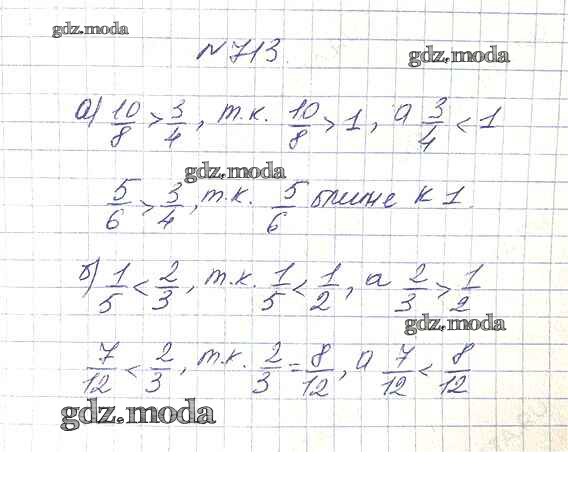 gdz.moda
N 713.
gdz.moda
а) 10/8 > 3/4, т.к. 10/8 > 1, а 3/4 < 1
gdz.moda
5/6 > 3/4, т.к. 5/6 ближе к 1.
б) 1/5 < 2/3, т.к. 1/5 < 1/2, а 2/3 > 1/2
gdz.moda
7/12 < 2/3, т.к. 2/3 = 8/12, а 7/12 < 8/12
gdz.moda